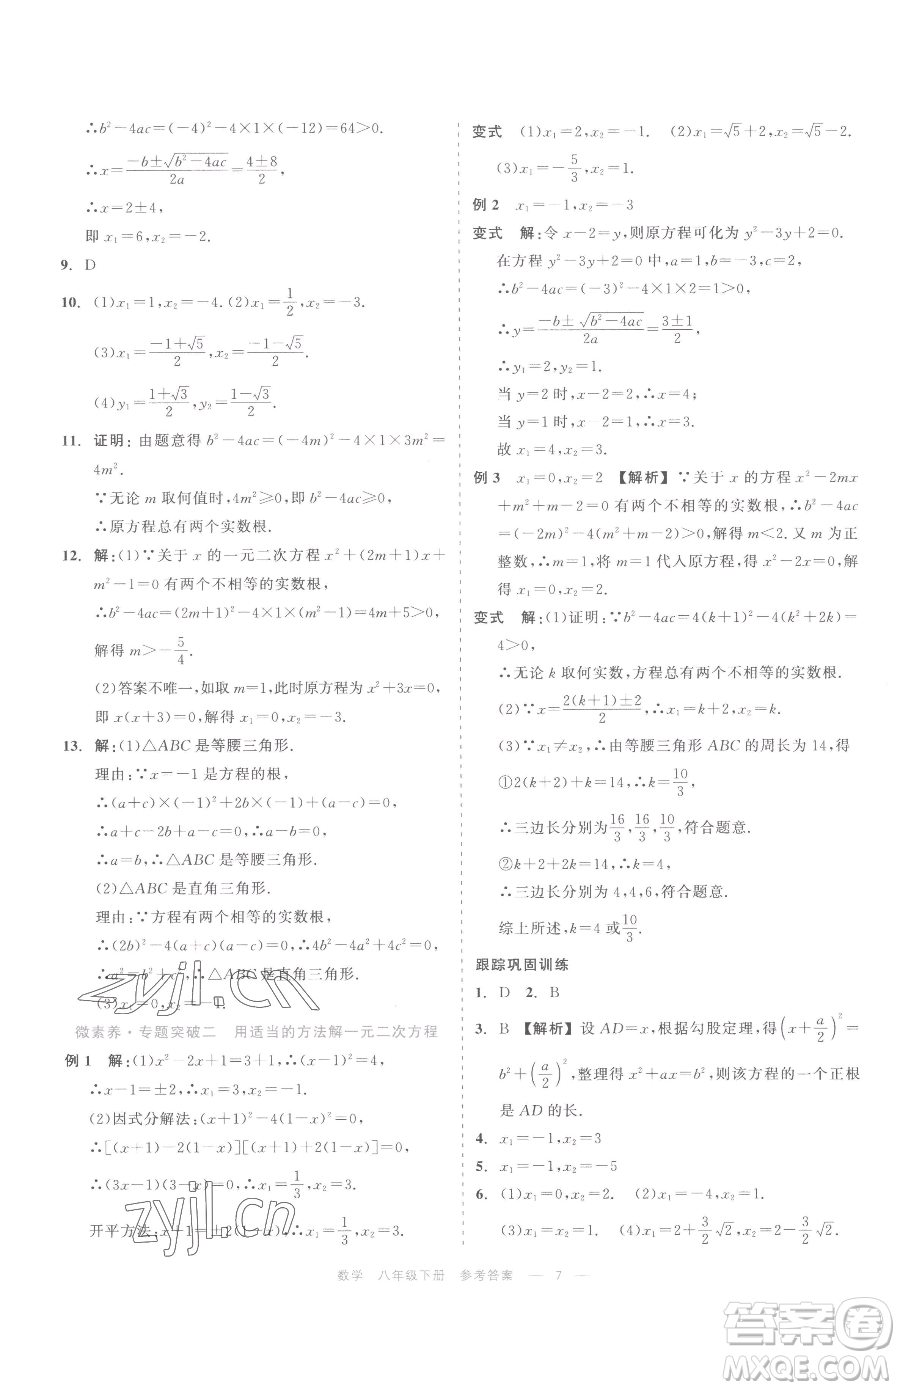 ∴b²－4ac＝(－4)²－4×1×(－12)＝64＞0.
∴x＝(－b±√(b²－4ac))/2a＝(4±8)/2,
∴x＝2±4,
即 x₁＝6,x₂＝－2.
9. D
10. (1)x₁＝1,x₂＝－4.(2)x₁＝1/2,x₂＝－3.
(3)x₁＝(－1＋√5)/2,x₂＝(－1－√5)/2.
(4)y₁＝(1＋√3)/2,y₂＝(1－√3)/2.
11. 证明:由题意得 b²－4ac＝(－4m)²－4×1×3m²＝
4m².
∵无论 m 取何值时,4m²≥0,即 b²－4ac≥0,
∴原方程总有两个实数根.
12. 解:(1)∵关于 x 的一元二次方程 x²＋(2m＋1)x＋
m²－1＝0 有两个不相等的实数根,
∴b²－4ac＝(2m＋1)²－4×1×(m²－1)＝4m＋5＞0,
解得 m＞－5/4.
(2)答案不唯一,如取 m＝1,此时原方程为 x²＋3x＝0,
即 x(x＋3)＝0,解得 x₁＝0,x₂＝－3.
13. 解:(1)△ABC 是等腰三角形.
理由:∵x＝－1 是方程的根,
∴(a＋c)×(－1)²－2b＋(a－c)＝0,
∴a＋c－2b＋a－c＝0,∴a－b＝0,
∴a＝b,∴△ABC 是等腰三角形.
(2)△ABC 是直角三角形.
理由:∵方程有两个相等的实数根,
∴(2b)²－4(a＋c)(a－c)＝0,∴4b²－4a²＋4c²＝0,
∴a²＝b²＋c²,∴△ABC 是直角三角形.
(3)x₁＝0,x₂＝－1.
zyjl.cn
微素养·专题突破二 用适当的方法解一元二次方程
例 1 解:(1)x²－2x＋1＝3＋1,∴(x－1)²＝4,
∴x－1＝±2,∴x₁＝3,x₂＝－1.
(2)因式分解法:(x＋1)²－4(x－1)²＝0,
∴[(x＋1)－2(x－1)][(x＋1)＋2(x－1)]＝0,
∴(3x－1)(3－x)＝0,∴x₁＝1/3,x₂＝3.
开平方法:x＋1＝±2(1－x),∴x₁＝1/3,x₂＝3.
zyjl.cn
变式 (1)x₁＝2,x₂＝－1. (2)x₁＝√5＋2,x₂＝√5－2.
(3)x₁＝－5/3,x₂＝1.
例 2 x₁＝－1,x₂＝－3
变式 解:令 x－2＝y,则原方程可化为 y²－3y＋2＝0.
在方程 y²－3y＋2＝0 中,a＝1,b＝－3,c＝2,
∴b²－4ac＝(－3)²－4×1×2＝1＞0,
∴y＝(－b±√(b²－4ac))/2a＝(3±1)/2,
∴y₁＝2,y₂＝1.
当 y＝2 时,x－2＝2,∴x＝4;
当 y＝1 时,x－2＝1,∴x＝3.
故 x₁＝4,x₂＝3.
例 3 x₁＝0,x₂＝2 【解析】∵关于 x 的方程 x²－2mx
＋m²＋m－2＝0 有两个不相等的实数根,∴b²－4ac
＝(－2m)²－4(m²＋m－2)＞0,解得 m＜2.又 m 为正
整数,∴m＝1,将 m＝1 代入原方程,得 x²－2x＝0,解
得 x₁＝0,x₂＝2.
变式 解:(1)证明:∵b²－4ac＝4(k＋1)²－4(k²＋2k)＝
4＞0,
∴无论 k 取何实数,方程总有两个不相等的实数根.
(2)∵x＝(2(k＋1)±2)/2,∴x₁＝k＋2,x₂＝k.
(3)∵x₁≠x₂,而等腰三角形 ABC 的周长为 14,得
①2(k＋2)＋k＝14,∴k＝10/3,
∴三边长分别为16/3,16/3,10/3,符合题意.
②k＋2＋2k＝14,∴k＝4,
∴三边长分别为 4,4,6,符合题意.
综上所述,k＝4 或10/3.
跟踪巩固训练
1. D 2. B
3. B 【解析】设 AD＝x,根据勾股定理,得(x＋a/2)²＝
b²＋(a/2)²,整理得 x²＋ax＝b²,则该方程的一个正根
是 AD 的长.
4. x₁＝－1,x₂＝3
5. x₁＝－1,x₂＝5
6. (1)x₁＝0,x₂＝2. (2)x₁＝－4,x₂＝1.
(3)x₁＝x₂＝1. (4)x₁＝2＋3/2√2,x₂＝2－3/2√2.
数学 八年级下册 参考答案 — 7 —
答案圈
MXQE.COM